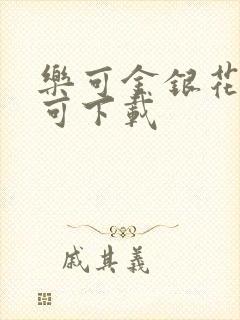 樂可金銀花
可下載
戚其義